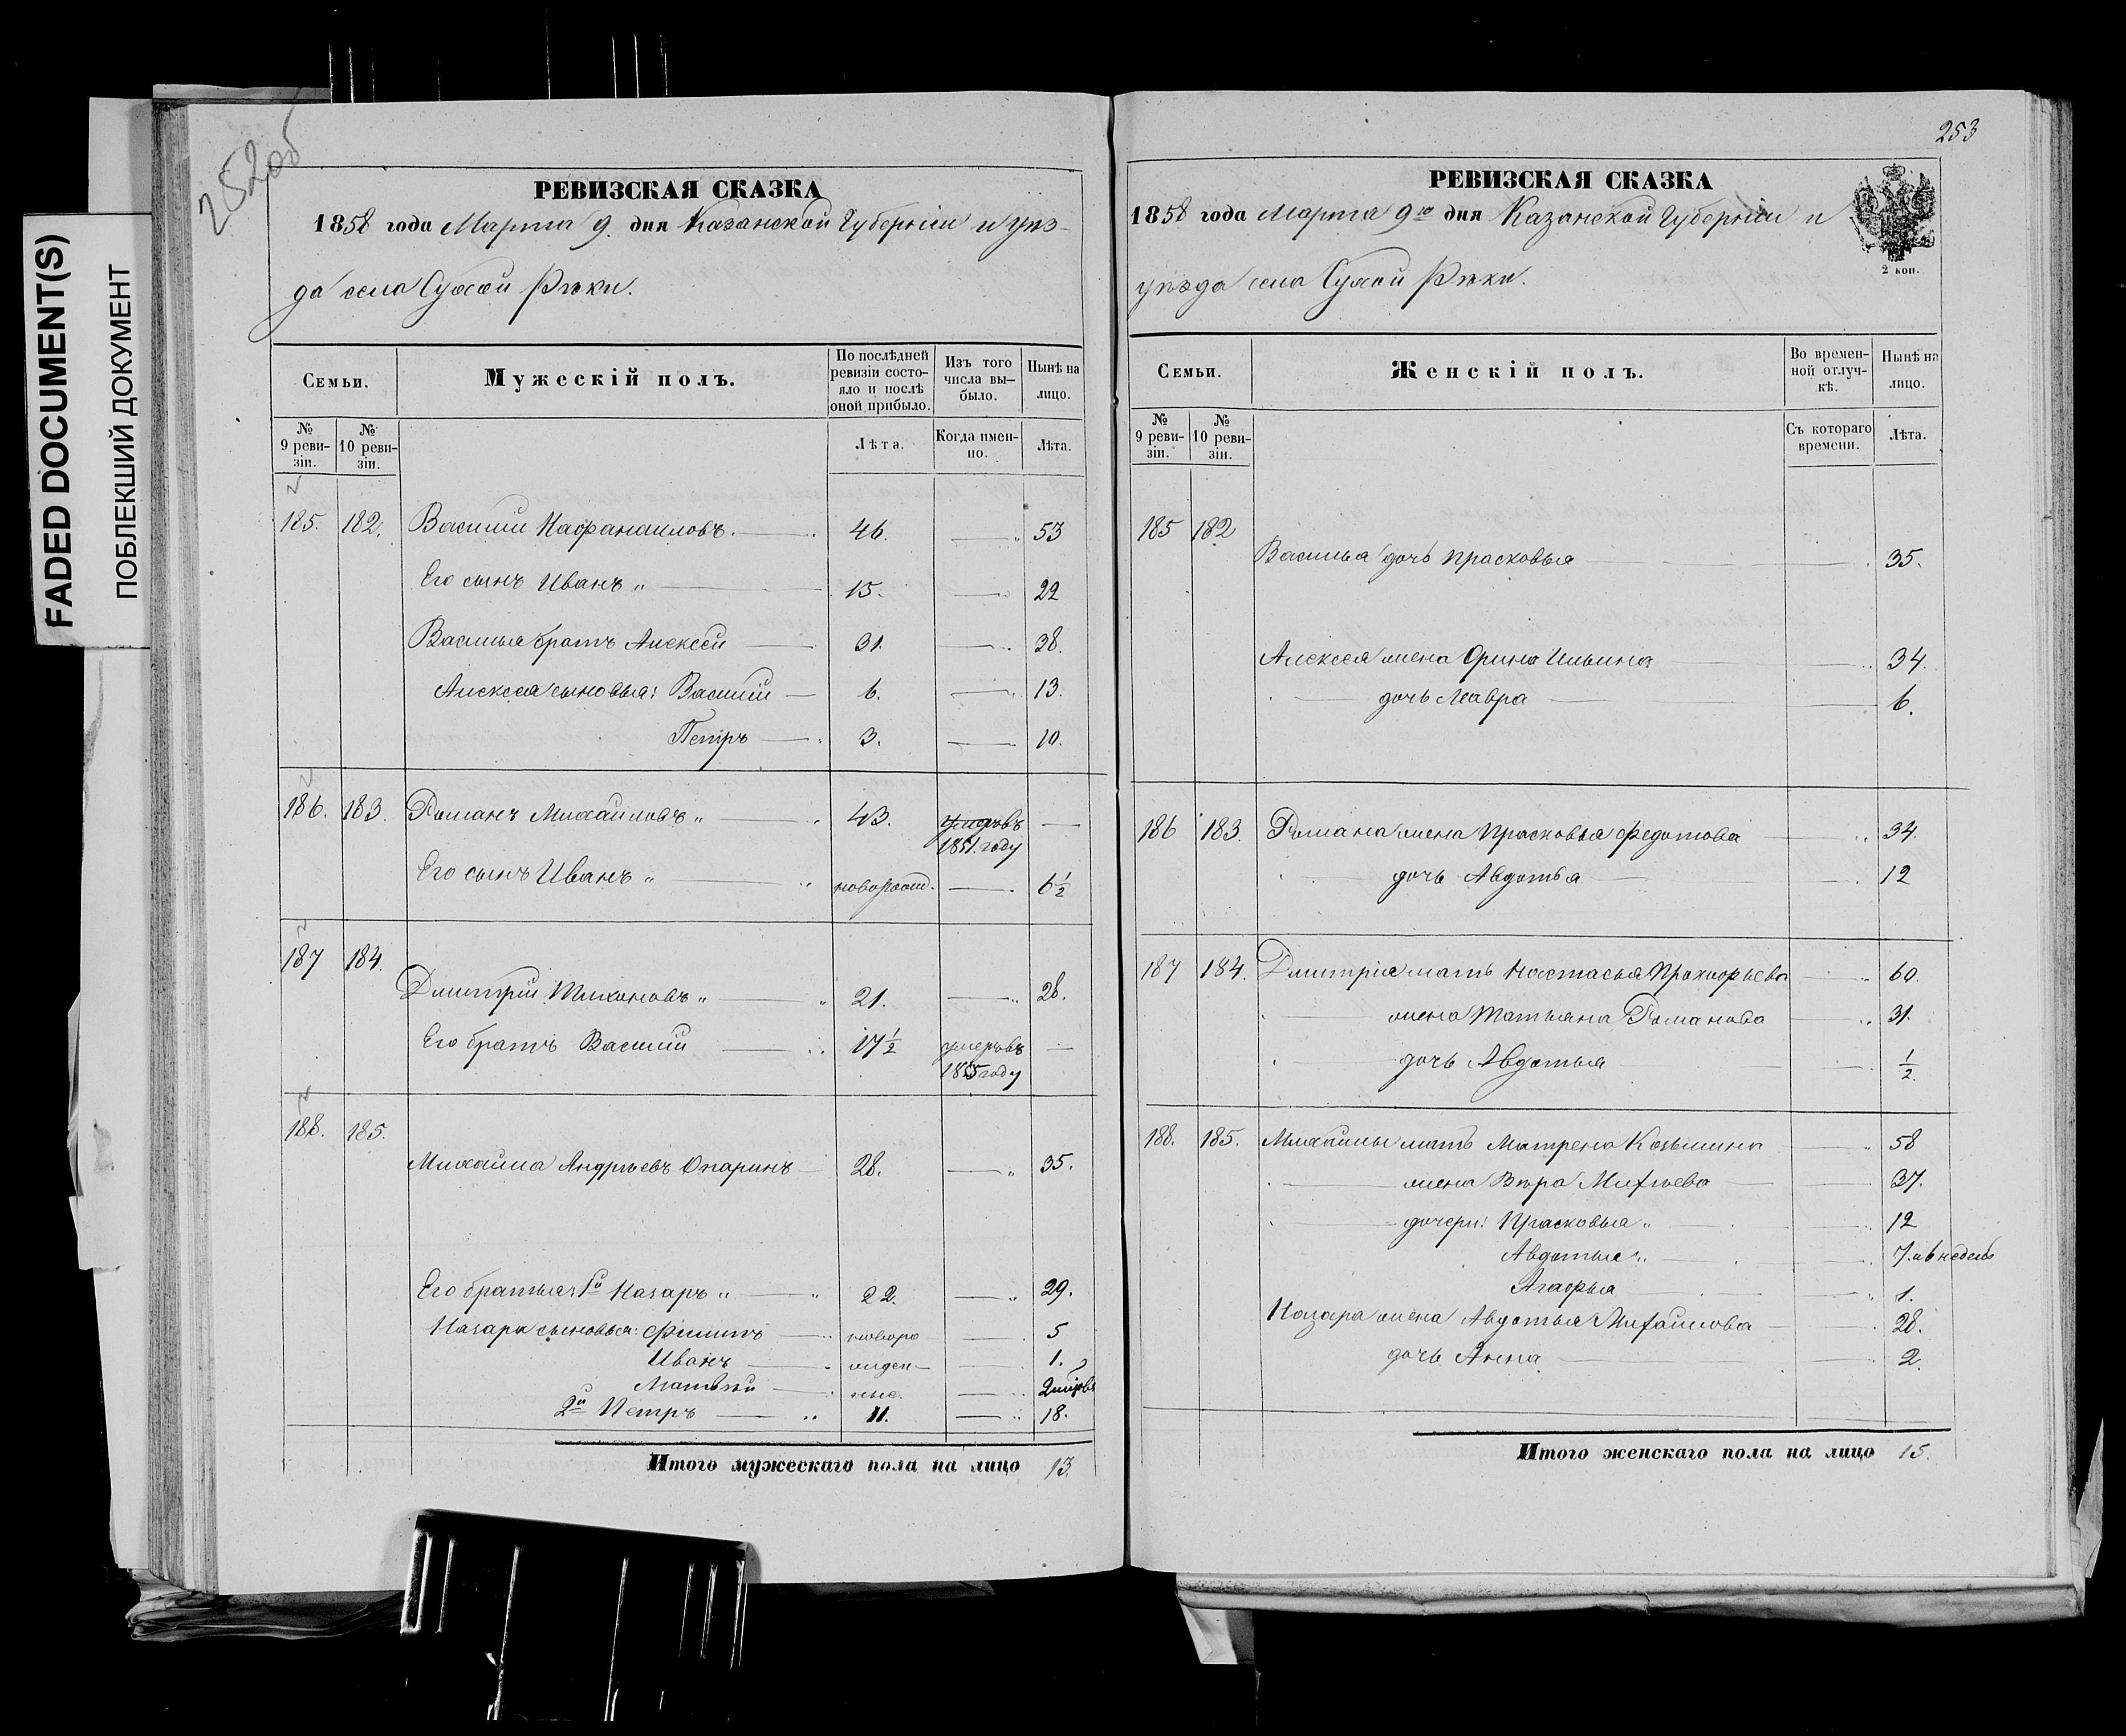 FADED DOCUMENT(S)
ПОБЛЕКШИЙ ДОКУМЕНТ
252об
РЕВИЗСКАЯ СКАЗКА
1858 года Марта 9. дня Казанской Губерніи и уѣз-
да села Сухой Рѣки.
Семьи.
Мужескій полъ.
По послѣдней ревизіи состо-яло и послѣ оной прибыло.
Изъ того числа вы-было.
Нынѣ на лицо.
№ 9 реви-зіи.
№ 10 реви-зіи.
Лѣта.
Когда имен-но.
Лѣта.
185. 182. Василий Нафанаиловъ. 46. 53
Его сынъ Иванъ 15. 22
Василья братъ Алексей 31. 38.
Алексея сыновья: Василий 6. 13.
Петръ 3. 10.
186. 183. Романъ Михайловъ 43. умеръ въ 1851. году
Его сынъ Иванъ новорожд. 6½
187 184.
Дмитрій Тихоновъ 21. 28.
Его братъ Василий 17½ умеръ въ 1855 году
188. 185.
Михайла Андрѣевъ Опаринъ 28. 35.
Его братья: 1й Назаръ 22. 29.
Назара сыновья: Филипъ новоро 5
Иванъ жден 1.
Матвѣй ные. 2
2й Петръ 11. 18.
Итого мужескаго пола на лицо 13.
253
РЕВИЗСКАЯ СКАЗКА
1858 года Марта 9го дня Казанской Губерніи и
уѣзда села Сухой Рѣки.
2 коп.
Семьи.
Женскій полъ.
Во времен-ной отлуч-кѣ.
Нынѣ на лицо.
№ 9 реви-зіи.
№ 10 реви-зіи.
Съ котораго времени.
Лѣта.
185 182
Василья дочь Прасковья 35.
Алексея жена Орина Ильина 34.
дочь Мавра 6.
186 183. Романа жена Прасковья Федотова 34.
дочь Авдотья 12
187 184. Дмитрія мать Настасья Прокофьева 60.
жена Татьяна Романова 31.
дочь Авдотья ½.
188. 185. Михайлы мать Матрена Козьмина 58
жена Вѣра Михѣева 37.
дочери: Прасковья 12
Авдотья 7. и 6 недель
Агафья 1.
Назара жена Авдотья Михайлова 28.
дочь Анна 2.
Итого женскаго пола на лицо 15.